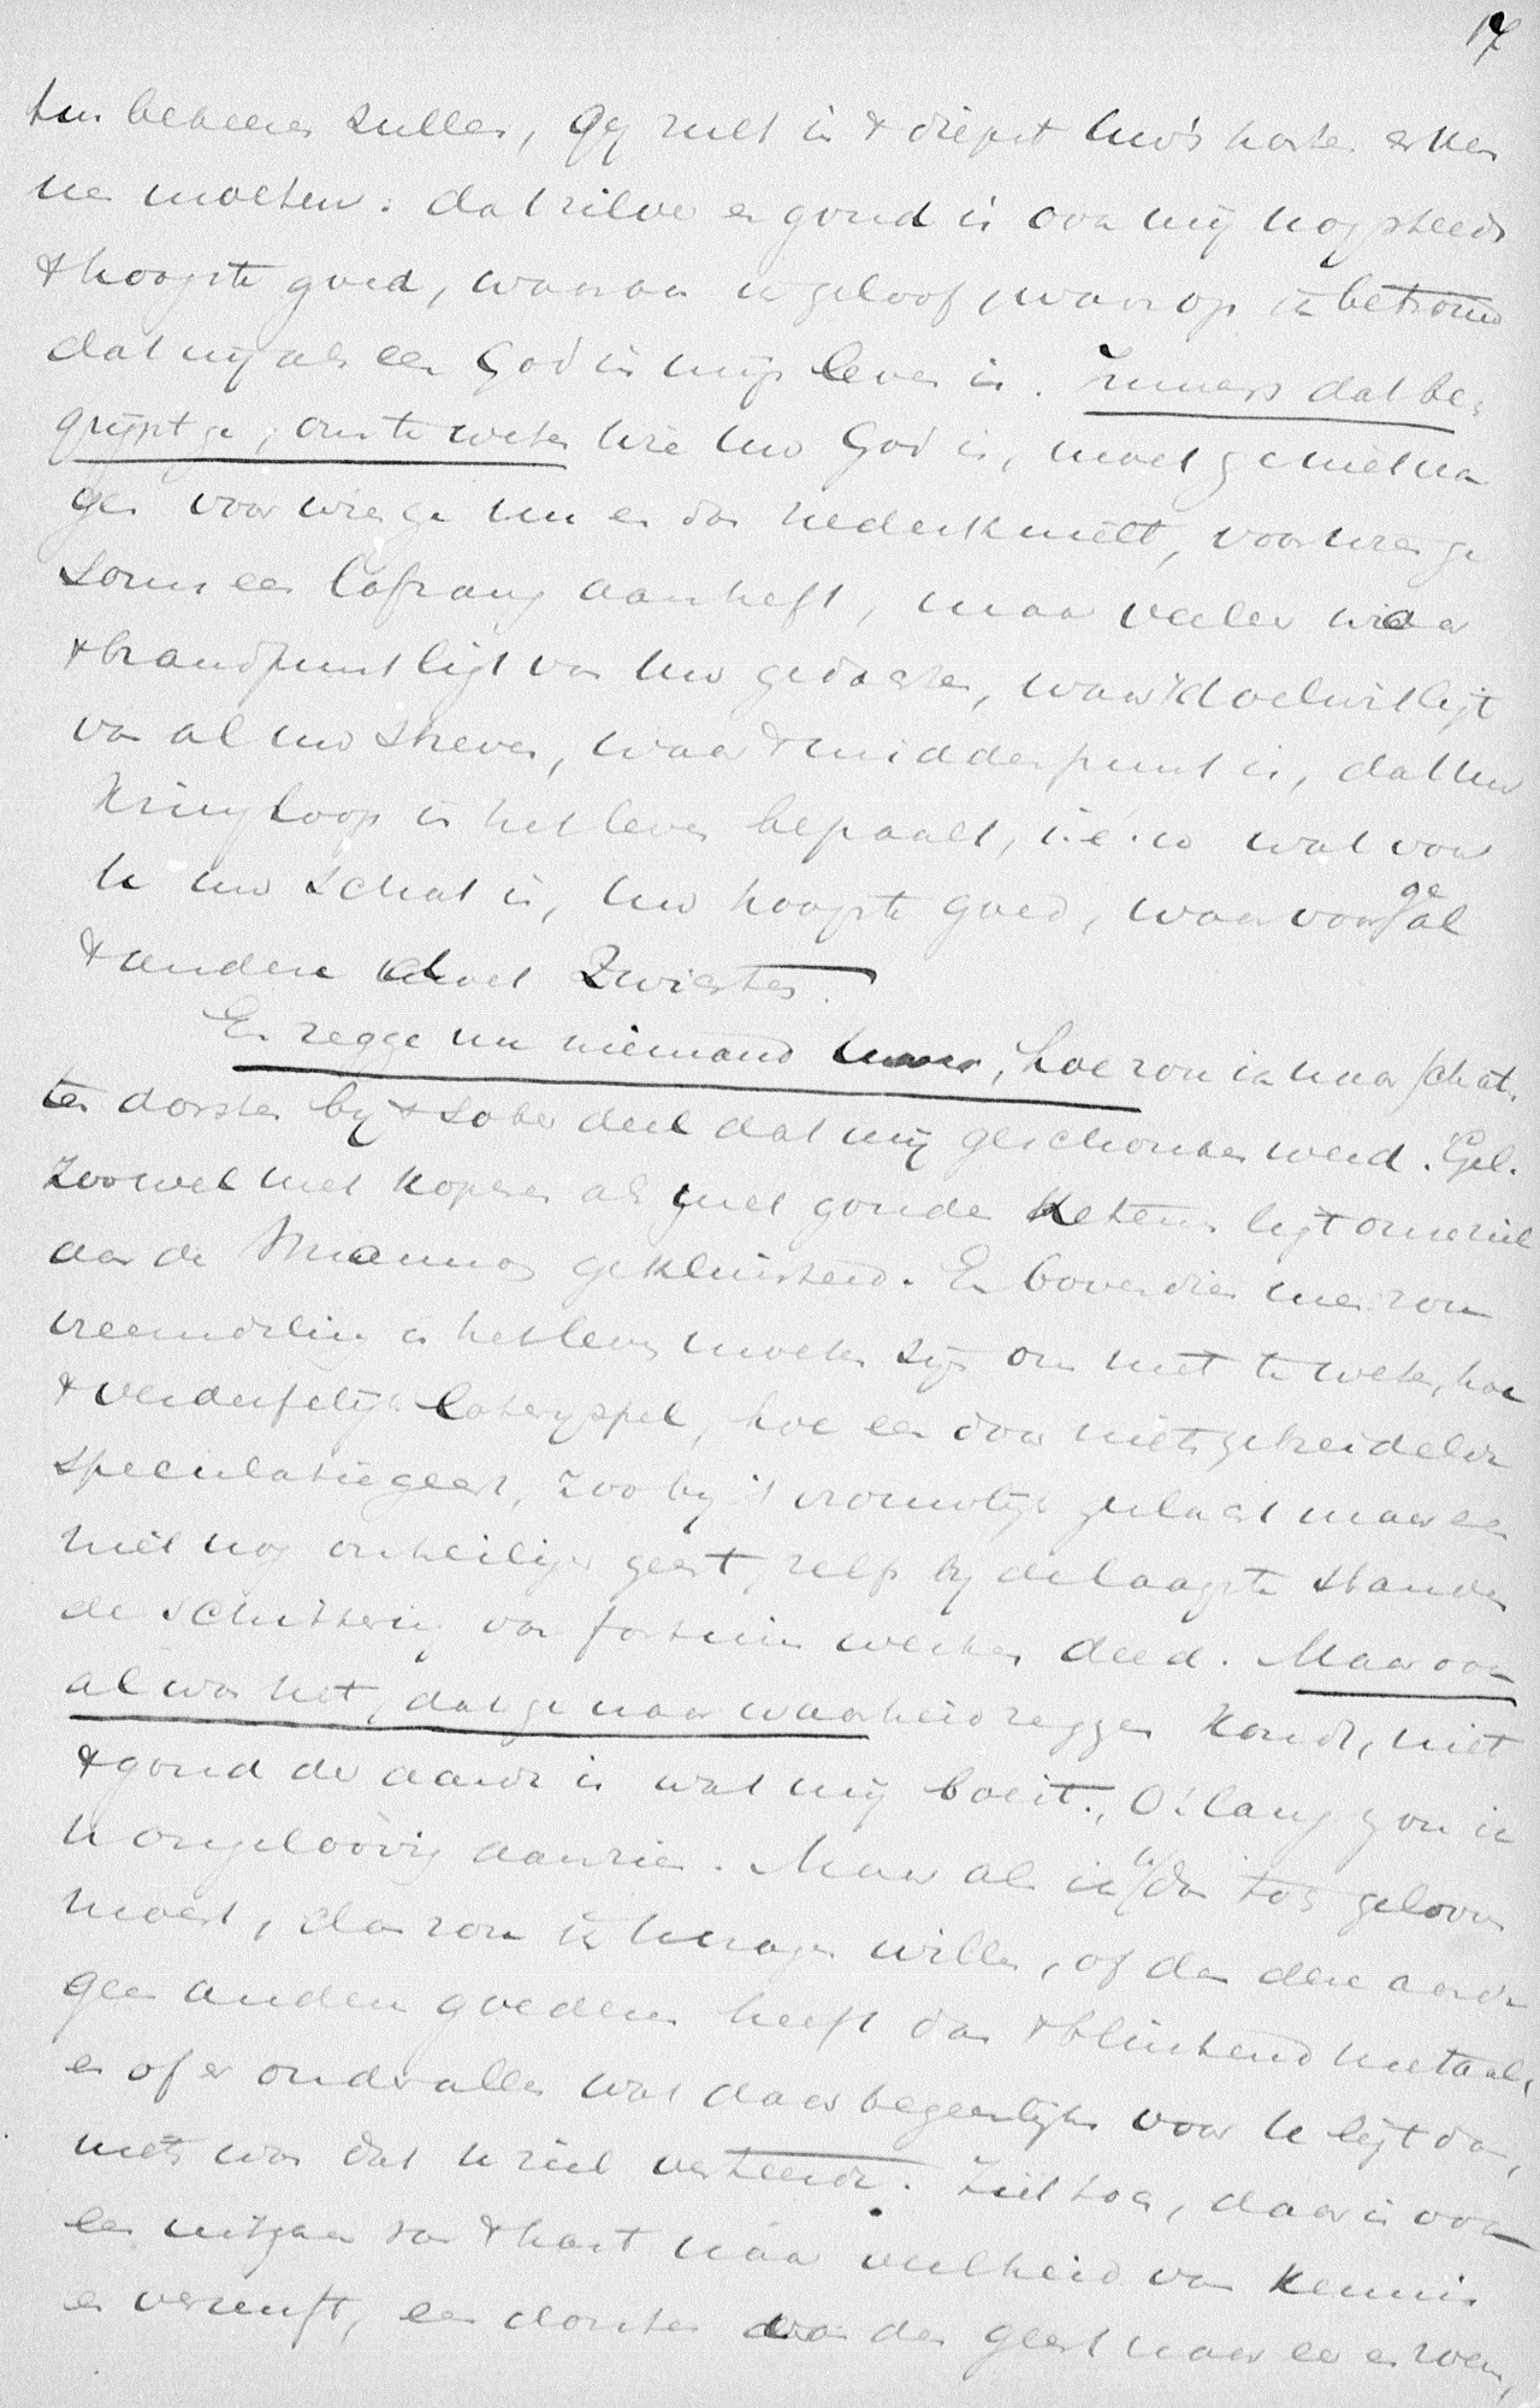 17
ten bekennen zullen, gij zult in 't diepst uws harten erken
nen moeten: dat zilver en goud is ook mij nog steeds
't hoogste goed, waaraan ik geloof, waarop ik betrouw
dat mij als een God in mijn leven is. Immers dat be-
grijpt ge, om te weten wie uw God is, moet ge niet vra
gen voor wien ge nu en dan nederknielt, voor wien ge
soms een lofzang aanheft, maar veeleer waar
't brandpunt ligt van uw gedachten, waar 't doelwit ligt
van al uw streven, waar 't middenpunt is, dat uw
Kringloop in het leven bepaalt, i.é.w wat voor
U uw schat is, uw hoogste goed, waarvoor ge al
't andere moet zwichten.
En zegge nu niemand, hoe zou ik naar schat-
ten dorsten bij 't sober deel dat mij geschonken werd. Gel.
Zoowel met koperen als met gouden Ketens ligt onze ziel
aan de Mammon gekluisterd. En bovendien men zou
vreemdeling in het leven moeten zijn om niet te weten, hoe
't verderfelijk loterijspel, hoe een door niets gebreidelde
speculatiegeest, zoo bij 't vrouwelijk geslacht maar een
niet nog onheiliger geest, zelfs bij de laagste standen
de schittering van fortuin werken deed. Maar ook
al was het, dat ge naar waarheid zeggen kondt, niet
't goud der aarde is wat mij boeit., O! lang zou ik
U ongeloovig aanzien. Maar als ik U dan toch gelooven
moest, dan zou ik U vragen willen, of dan deze aarde
geen andere goederen heeft dan 't blinkend metaal,
en of er onder alles wat daar begeerlijks voor U ligt dan,
niets was dat U ziel verteerde. Ziet toch, daar is ook
een uitgaan van 't hart naar veelheid van Kennis
en vernuft, een dorsten van den geest naar eer en roem,